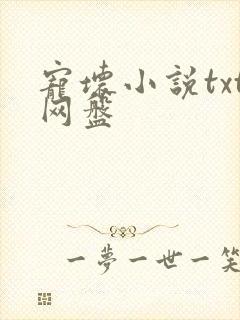 寵壞小說txt
网盤
一夢一世一笑